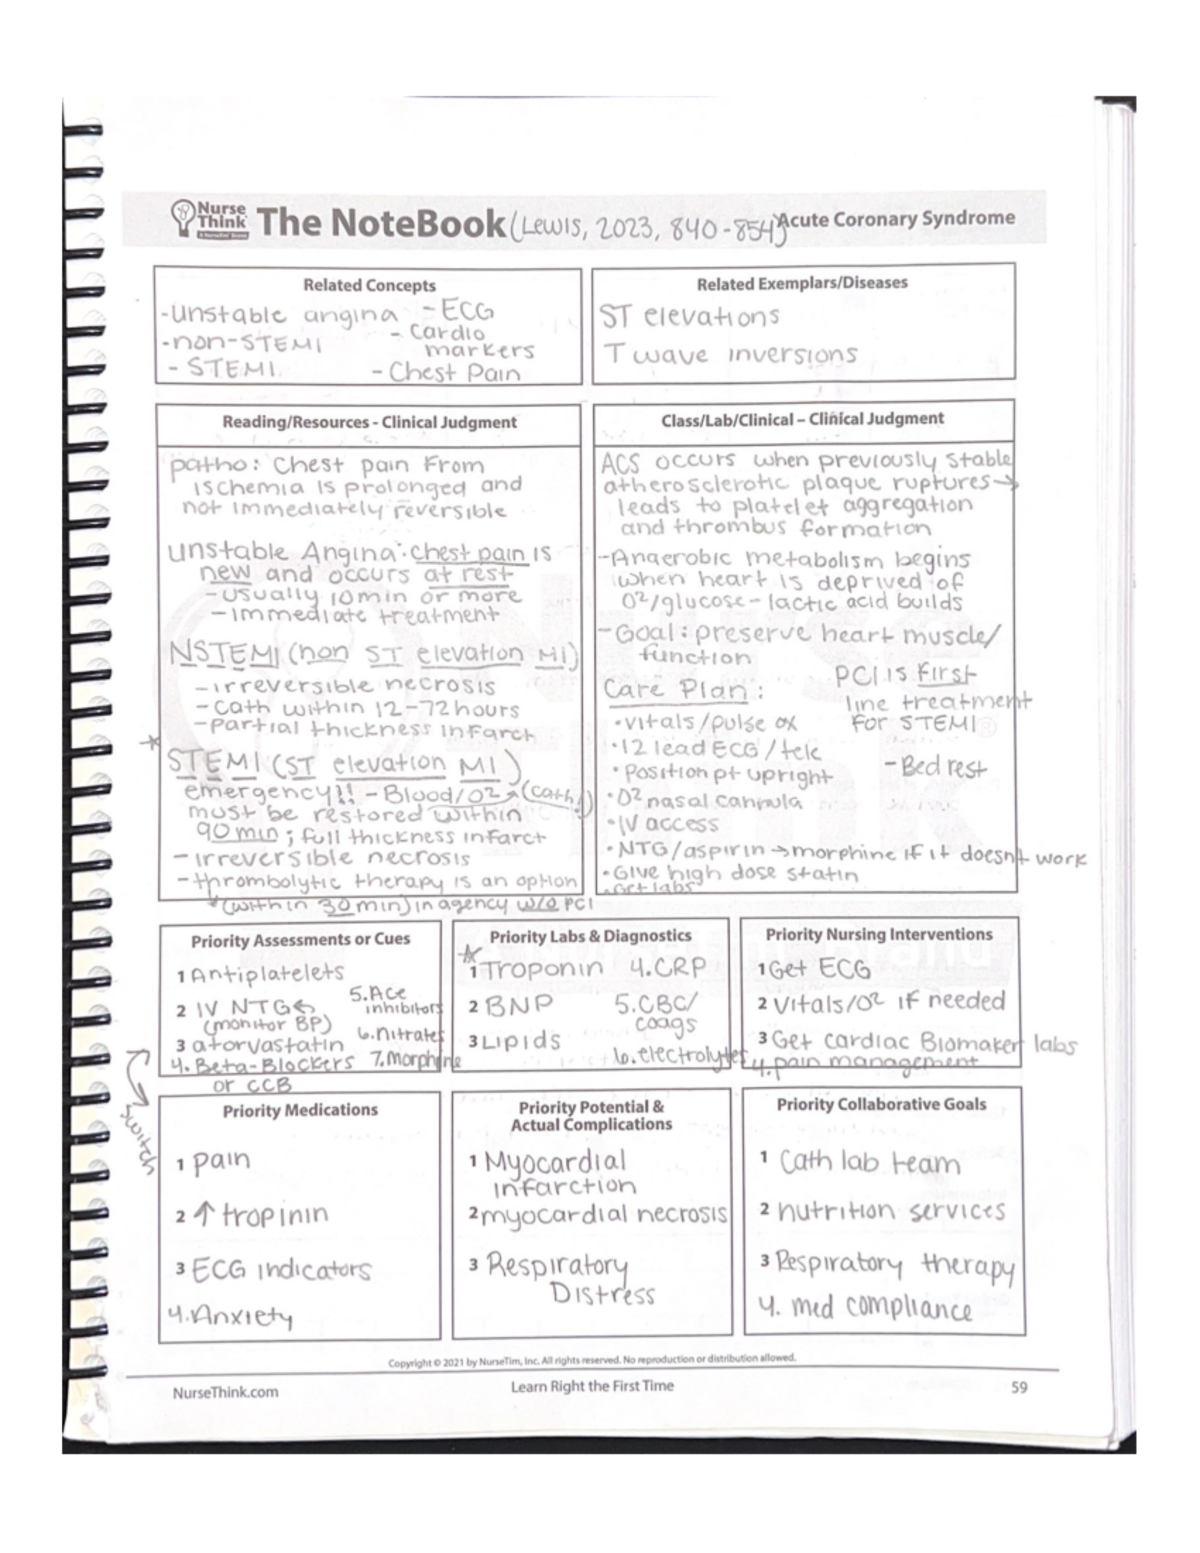 Nurse Think The NoteBook (Lewis, 2023, 840-854) Acute Coronary Syndrome
Related Concepts
-Unstable angina
-non-STEMI
- STEMI
- ECG
- Cardio markers
- Chest Pain
Related Exemplars/Diseases
ST elevations
T wave inversions
Reading/Resources - Clinical Judgment
patho: Chest pain from
ischemia is prolonged and
not immediately reversible
Unstable Angina: chest pain is
new and occurs at rest
- usually 10min or more
- immediate treatment
NSTEMI (non ST elevation MI)
- irreversible necrosis
- Cath within 12-72 hours
- partial thickness infarct
* STEMI (ST elevation MI)
emergency!! - Blood/O2 → (cath!)
must be restored within
90 min; full thickness infarct
- irreversible necrosis
- thrombolytic therapy is an option
*(within 30 min) in agency w/o PCI
Class/Lab/Clinical – Clinical Judgment
ACS occurs when previously stable
atherosclerotic plaque ruptures→
leads to platelet aggregation
and thrombus formation
-Anaerobic metabolism begins
when heart is deprived of
O2/glucose - lactic acid builds
- Goal: preserve heart muscle/
function
PCI is first
line treatment
for STEMI
- Bed rest
Care Plan:
•vitals/pulse ox
•12 lead ECG / tele
•Position pt upright
•O2 nasal cannula
•IV access
•NTG/aspirin→morphine if it doesnt work
•Give high dose statin
•Get labs
Priority Assessments or Cues
1 Antiplatelets
2 IV NTG←
(monitor BP)
3 atorvastatin
4. Beta-Blockers
or CCB
5. Ace
inhibitors
6. Nitrates
7. Morphine
switch
Priority Labs & Diagnostics
* 1 Troponin
2 BNP
3 Lipids
4. CRP
5. CBC/
coags
6. electrolytes
Priority Nursing Interventions
1 Get ECG
2 Vitals/O2 if needed
3 Get cardiac Biomaker labs
4. pain management
Priority Medications
1 pain
2 ↑ tropinin
3 ECG indicators
4. Anxiety
Priority Potential &
Actual Complications
1 Myocardial
infarction
2 myocardial necrosis
3 Respiratory
Distress
Priority Collaborative Goals
1 Cath lab team
2 nutrition services
3 Respiratory therapy
4. med compliance
Copyright © 2021 by NurseTim, Inc. All rights reserved. No reproduction or distribution allowed.
NurseThink.com
Learn Right the First Time
59